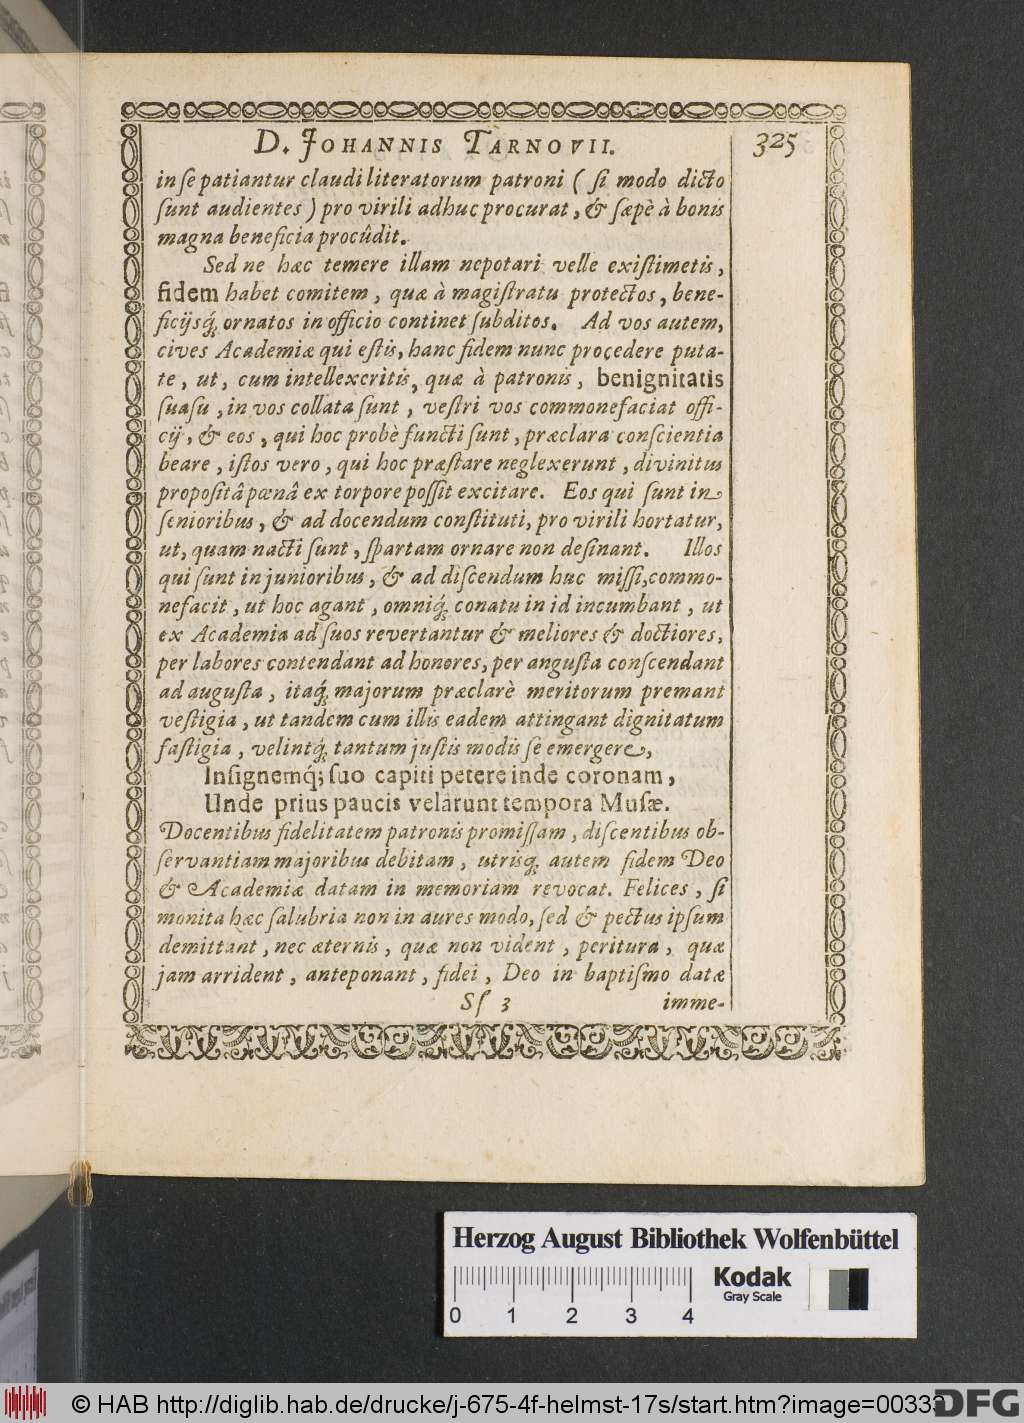 D. JOHANNIS TARNOVII. 325
in se patiantur claudi literatorum patroni ( ſi modo dicto
ſunt audientes ) pro virili adhuc procurat, & ſæpè à bonis
magna beneficia procûdit.
Sed ne hæc temere illam nepotari velle exiſtimetis,
fidem habet comitem, quæ à magiſtratu protectos, bene-
ficijsq́; ornatos in officio continet ſubditos. Ad vos autem,
cives Academiæ qui eſtis, hanc fidem nunc procedere puta-
te, ut, cum intellexeritis, quæ à patronis, benignitatis
ſuaſu, in vos collata ſunt, veſtri vos commonefaciat offi-
cij, & eos, qui hoc probè functi ſunt, præclara conſcientia
beare, iſtos vero, qui hoc præſtare neglexerunt, divinitus
propoſitâ pœnâ ex torpore poſſit excitare. Eos qui ſunt in
ſenioribus, & ad docendum conſtituti, pro virili hortatur,
ut, quam nacti ſunt, ſpartam ornare non deſinant. Illos
qui ſunt in junioribus, & ad diſcendum huc miſſi, commo-
nefacit, ut hoc agant, omniq́; conatu in id incumbant, ut
ex Academia ad ſuos revertantur & meliores & doctiores,
per labores contendant ad honores, per anguſta conſcendant
ad auguſta, itaq́; majorum præclarè meritorum premant
veſtigia, ut tandem cum illis eadem attingant dignitatum
faſtigia, velintq́; tantum juſtis modis ſe emergere,
Inſignemq́; ſuo capiti petere inde coronam,
Unde prius paucis velârunt tempora Muſæ.
Docentibus fidelitatem patronis promiſſam, diſcentibus ob-
ſervantiam majoribus debitam, utrisq; autem fidem Deo
& Academiæ datam in memoriam revocat. Felices, ſi
monita hæc ſalubria non in aures modo, ſed & pectus ipſum
demittant, nec æternis, quæ non vident, peritura, quæ
jam arrident, anteponant, fidei, Deo in baptiſmo datæ
Sſ 3 imme-
Herzog August Bibliothek Wolfenbüttel
Kodak
Gray Scale
0 1 2 3 4
© HAB http://diglib.hab.de/drucke/j-675-4f-helmst-17s/start.htm?image=00333
DFG